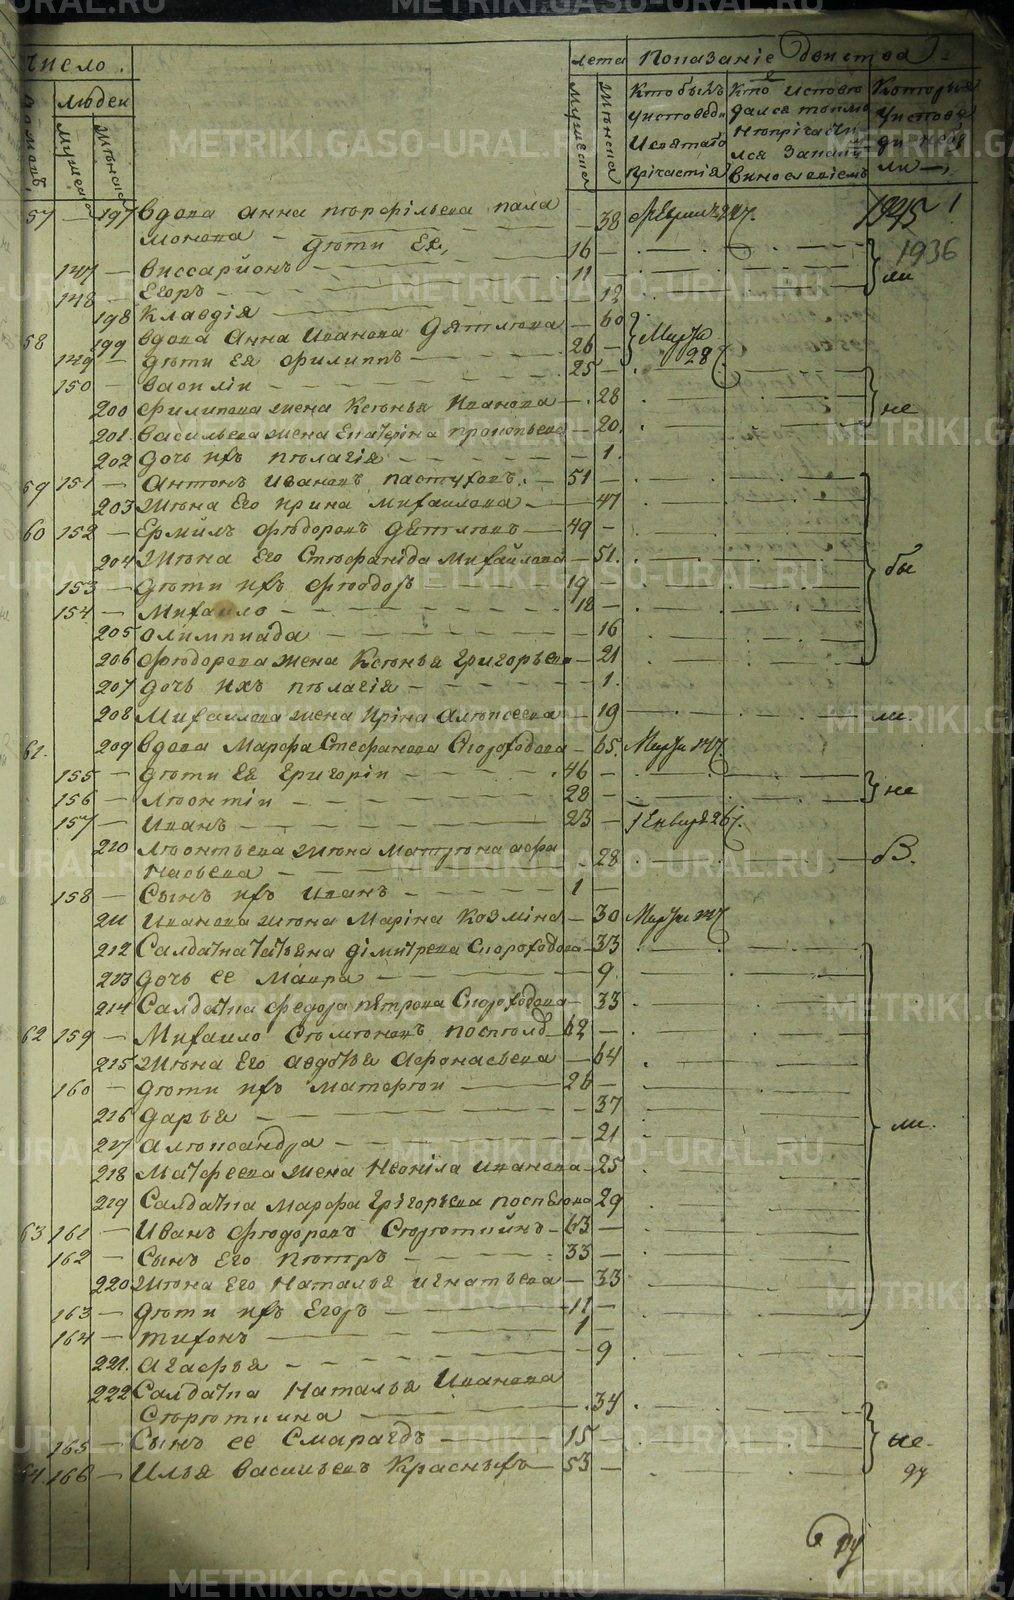 Число. лета Показаніе действа
Людеи
домовъ, Мужеска Женска Мужеска Женска
Кто былъ у исповеди и святаго причастія
Кто исповедался токмо не причастился за какимъ винословіемъ
Которыя у исповеди не были
57 — 197 вдова Анна Порфильева Пала — 38 1935!
монова — дети Ея, 16 — 1936
147 — Виссарионъ — 11 — ли
148 — Егоръ — 12
198 Клавдія
58 199 вдова Анна Иванова Дятлова — 60 Марта 28
149 — дети Ея Филиппъ — 26 —
150 — Василіи — 25 —
200 Филипова жена Ксенья Иванова — 28 не
201 Васильева жена Екатерина Прокопьева — 20.
202 Дочь ихъ Пелагія — 1.
59 151 — Антонъ Ивановъ Пастуховъ. — 51 —
203 Жена Его Ирина Михаилова — 47
60 152 — Ермилъ Федоровъ Дятловъ — 49 —
204 Жена Его Стефанида Михайлова — 51. бы
153 — Дети ихъ Феодоръ 19 —
154 — Михаило — 18 —
205 Олимпиада — 16
206 Федорова жена Ксенья Григорьева — 21
207 Дочь ихъ Пелагія — 1.
208 Михаилова жена Ирина Алексеева — 19 ли.
61. 209 вдова Марфа Стефанова Скороходова — 65.
155 — Дети Ея Григоріи — 46 —
156 — Леонтіи — 28 — не
157 — Иванъ — 23 — Генваря 26
210 Леонтьева жена Матрена Афа
насьева — 28 бз.
158 — Сынъ ихъ Иванъ — 1 —
211 Иванова жена Марина Козмина — 30
212 Салдатка Татьяна Димитрева Скороходова — 33
213 Дочь ее Мавра — 9
214 Салдатка Федора Петрова Скороходова — 33
62 159 — Михаило Семеновъ Поспелъ 62 —
215 Жена Его Авдотья Афонасьева — 64
160 — Дети ихъ Матфеи — 26 —
216 Дарья — 37
217 Александра — 21 ли.
218 Матфеева жена Неонила Иванова — 25
219 Салдатка Марфа Григорьева Поспелова 29
63 161 — Иванъ Федоровъ Стреткинъ — 63 —
162 — Сынъ Его Петръ — 33 —
220 Жена Его Наталья Игнатьева — 33
163 — Дети ихъ Егоръ — 11 —
164 — Тихонъ — 1 —
221. Агафья — 9
222 Салдатка Наталья Иванова
— 34
165 — Сынъ ее Смарагдъ — 15 — не
64. 166 — Илья Васильевъ Красныхъ — 53 —
METRIKI.GASO-URAL.RU